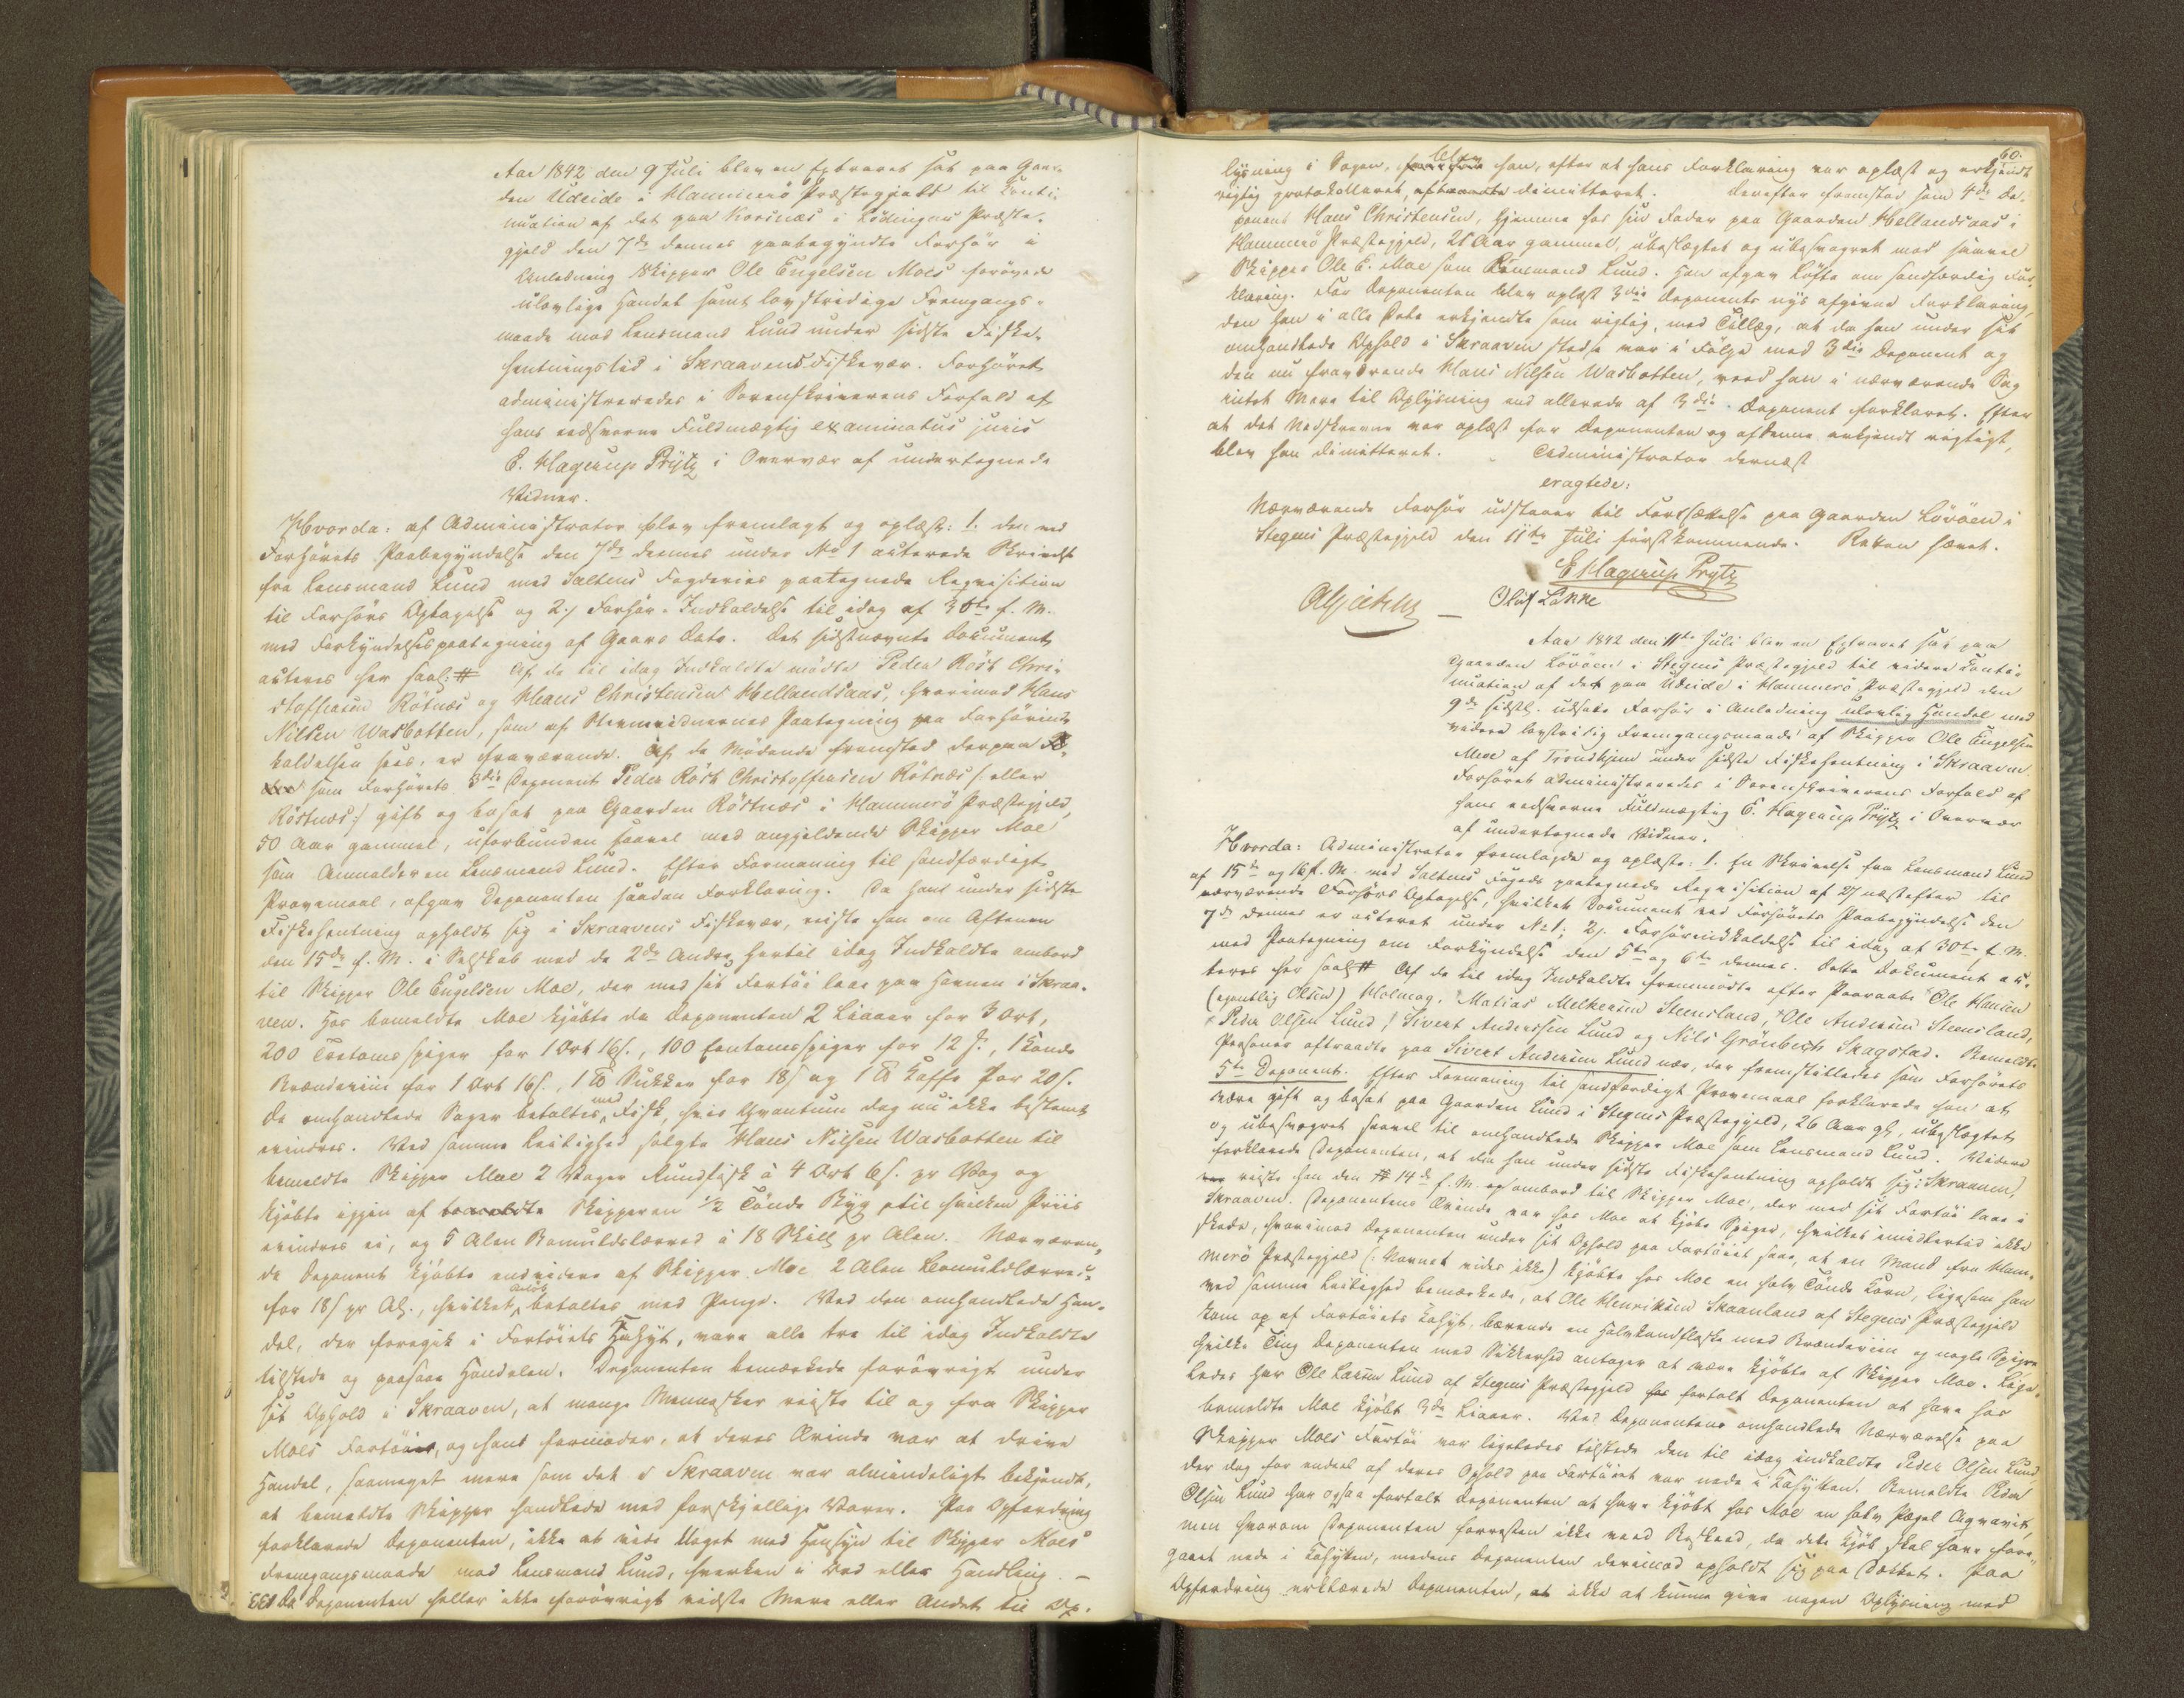 Aar 1842 den 9 Juli blev en Extraret sat paa Gaar-
den Udeide i Hammerö Præstegjeld til Conti-
nuation af det paa Korsnæs i Lödingens Præste-
gjeld den 7de dennes paabegyndte Forhör i
Anledning Skipper Ole Engelsen Moes forövede
ulovlige Handel samt lovstridige Fremgangs-
maade mod Lensmand Lund under sidste Fiske-
hentningstid i Skraavens Fiskevær. Forhöret
administreredes i Sorenskriverens Forfald af
hans eedsvorne Fuldmægtig examinatus juris
E. Hagerup Prÿtz i Overvær af undertegnede
Vidner.
Hvorda: af Administrator blev fremlagt og oplæst: 1. den ved
Forhörets Paabegyndelse den 7de dennes under No 1 acterede Skrivelse
fra Lensmand Lund med Saltens Fogderies paategnede Reqvisition
til Forhörs Optagelse og 2) Forhör-Indkaldelse til idag af 30te f. M.
med Forkyndelsespaategning af Gaars Dato. Det sidstnævnte Document
acteres her saal: # Af de til idag Indkaldte mödte Peder Röst Chri-
stoffersen Rötnæs og Hans Christensen Hellandsaas, hvorimod Hans
Nilsen Wasbotten, som af Stevnevidnernes Paategning paa Forhörind-
kaldelsen sees, er fraværende. Af de Mödende fremstod derpaa
som Forhörets 3die Deponent Peder Röst Christoffersen Rötnæs (: eller
Röstnæs :) gift og bosat paa Gaarden Röstnæs i Hammerö Præstegjeld,
50 Aar gammel, uforbunden saavel med angjeldende Skipper Moe
som Anmelderen Lensmand Lund. Efter Formaning til sandfærdigt
Provemaal, afgav Deponenten saadan Forklaring. Da han under sidste
Fiskehentning opholdt sig i Skraavens Fiskevær, reiste han om Aftenen
den 15de f. M. i Selskab med de 2de Andre hertil idag Indkaldte ombord
til Skipper Ole Engelsen Moe, der med sit Fartöi laae paa Havnen i Skraa-
ven. Hos bemeldte Moe kjöbte da Deponenten 2 Liaaer for 3 Ort,
200 Totomsspiger for 1 Ort 16 s., 100 Entomesspiger for 12 s., 1 Kande
Brændeviin for 1 Ort 16 s., 1 ℔ Sukker for 18 s og 1 ℔ Kaffe for 20 s.
De omhandlede Sager betaltes med Fisk, hvis Qvantum dog nu ikke bestemt
erindres. Ved samme Leilighed solgte Hans Nilsen Wasbotten til
bemeldte Skipper Moe 2 Voger Rundfisk à 4 Ort 6 s. pr Vog og
kjöbte igjen af bemeldte Skipperen 1/2 Tönde Byg til hvilken Priis
erindres ei, og 5 Alen Bomuldslærred à 18 Skill. pr Alen. Nærværen-
de Deponent kjöbte endvidere af Skipper Moe 2 Alen Bomuldlærred
for 18 s pr Al., hvilket betaltes med Penge. Ved den omhandlede Han-
del, der foregik i Fartöiets Kahyt, vare alle tre til idag Indkaldte
tilstede og paasaae Handelen. Deponenten bemærkede forövrigt under
sit Ophold i Skraaven, at mange Mennesker reiste til og fra Skipper
Moes Fartöi, og han formoder, at deres Ærinde var at drive
Handel, saameget mere som det i Skraaven var almindeligt bekjendt,
at bemeldte Skipper handlede med forskjellige Varer. Paa Opfordring
forklarede Deponenten, ikke at vide Noget med Hensyn til Skipper Moes
Fremgangsmaade mod Lensmand Lund, hverken i Ord eller Handling. —
Da Deponenten heller ikke forövrigt vidste Mere eller Andet til Op-
60.
lysning i Sagen, blev han, efter at hans Forklaring var oplæst og erkjendt
rigtig protokolleret, dimitteret. Derefter fremstod som 4de De-
ponent Hans Christensen, hjemme hos sin Fader paa Gaarden Hellandsaas i
Hammerö Præstegjeld, 21 Aar gammel, ubeslægtet og ubesvogret med saavel
Skipper Ole E. Moe som Lensmand Lund. Han afgav Löfte om sandfærdig For-
klaring. For Deponenten blev oplæst 3die Deponents nys afgivne Forklaring,
den han i alle Dele erkjendte som rigtig, med Tillæg, at da han under sit
omhandlede Ophold i Skraaven stedse var i Fölge med 3die Deponent og
den nu fraværende Hans Nilsen Wasbotten, veed han i nærværende Sag
intet Mere til Oplysning end allerede af 3die Deponent forklaret. Efter
at det Nedskrevne var oplæst for Deponenten og af denne erkjendt rigtigt,
blev han dimitteret. Administrator dernæst
eragtede:
Nærværende Forhör udstaaer til Fortsættelse paa Gaarden Lövöen i
Stegens Præstegjeld den 11te Juli förstkommende. Retten hævet.
E Hagerup Prytz
Oluf Løkke
Aar 1842 den 11te Juli blev en Extraret sat paa
Gaarden Lövöen i Stegens Præstegjeld til videre Conti-
nuation af det paa Udeide i Hammerö Præstegjeld den
9de sidstl. udsatte Forhör i Anledning ulovlig Handel med
videre lovstridig Fremgangsmaade af Skipper Ole Engelsen
Moe af Trondhjem under sidste Fiskehentning i Skraaven.
Forhöret administreredes i Sorenskriverens Forfald af
hans eedsvorne Fuldmægtig E. Hagerup Prÿtz i Overvær
af undertegnede Vidner.
Hvorda: Administrator fremlagde og oplæste: 1. En Skrivelse fra Lensmand Lund
af 15de og 16 f. M. med Saltens Fogeds paategnede Reqvisition af 27 næstefter til
nærværende Forhörs Optagelse, hvilket Document ved Forhörets Paabegyndelse den
7de dennes er acteret under No 1; 2). Forhörindkaldelse til idag af 30te f. M.
med Paategning om Forkyndelse den 5te og 6te dennes. Dette Document ac-
teres her saal # Af de til idag Indkaldte fremmödte efter Paaraab: Ole Hansen
(egentlig Olsen) Holmog, Matias Melkersen Steensland, Ole Andersen Steensland,
Peder Olsen Lund, Sivert Anderssen Lund og Nils Grönbech Skagstad. Bemeldte
Personer aftraadte paa Sivert Andersen Lund nær, der fremstilledes som Forhörets
5te Deponent. Efter Formaning til sandfærdigt Provemaal forklarede han at
være gift og bosat paa Gaarden Lund i Stegens Præstegjeld, 26 Aar gl, ubeslægtet
og ubesvogret saavel til omhandlede Skipper Moe som Lensmand Lund. Videre
forklarede Deponenten, at da han under sidste Fiskehentning opholdt sig i Skraaven,
reiste han den 14de f. M. ombord til Skipper Moe, der med sit Fartöi laae i
Skraaven. Deponentens Ærinde var hos Moe at kjöbe Spiger, hvilket imidlertid ikke
skede, hvorimod Deponenten under sit Ophold paa Fartöiet saae, at en Mand fra Ham-
merö Præstegjeld (: Navnet vides ikke) kjöbte hos Moe en halv Tönde Korn, ligesom han
ved samme Leilighed bemærkede, at Ole Henriksen Skaanland af Stegens Præstegjeld
kom op af Fartöiets Kahyt, bærende en Halvkandflaske med Brændeviin og nogle Spiger
hvilke Ting Deponenten med Sikkerhed antager at være kjöbte af Skipper Moe. Lige-
ledes har Ole Larsen Lund af Stegens Præstegjeld fortalt Deponenten at have hos
bemeldte Moe kjöbt 3de Liaaer. Ved Deponentens omhandlede Nærværelse paa
Skipper Moes Fartöi var ligeledes tilstede den til idag indkaldte Peder Olsen Lund,
der dog for endeel af deres Ophold paa Fartöiet var nede i Kahytten. Bemeldte Peder
Olsen Lund har ogsaa fortalt Deponenten at have kjöbt hos Moe en halv Pægel Aqvavit,
men hvorom Deponenten forresten ikke veed Beskeed, da dette Kjöb skal have fore-
gaaet nede i Kahytten, medens Deponenten derimod opholdt sig paa Dækket. Paa
Opfordring erklærede Deponenten, ikke at kunne give nogen Oplysning med